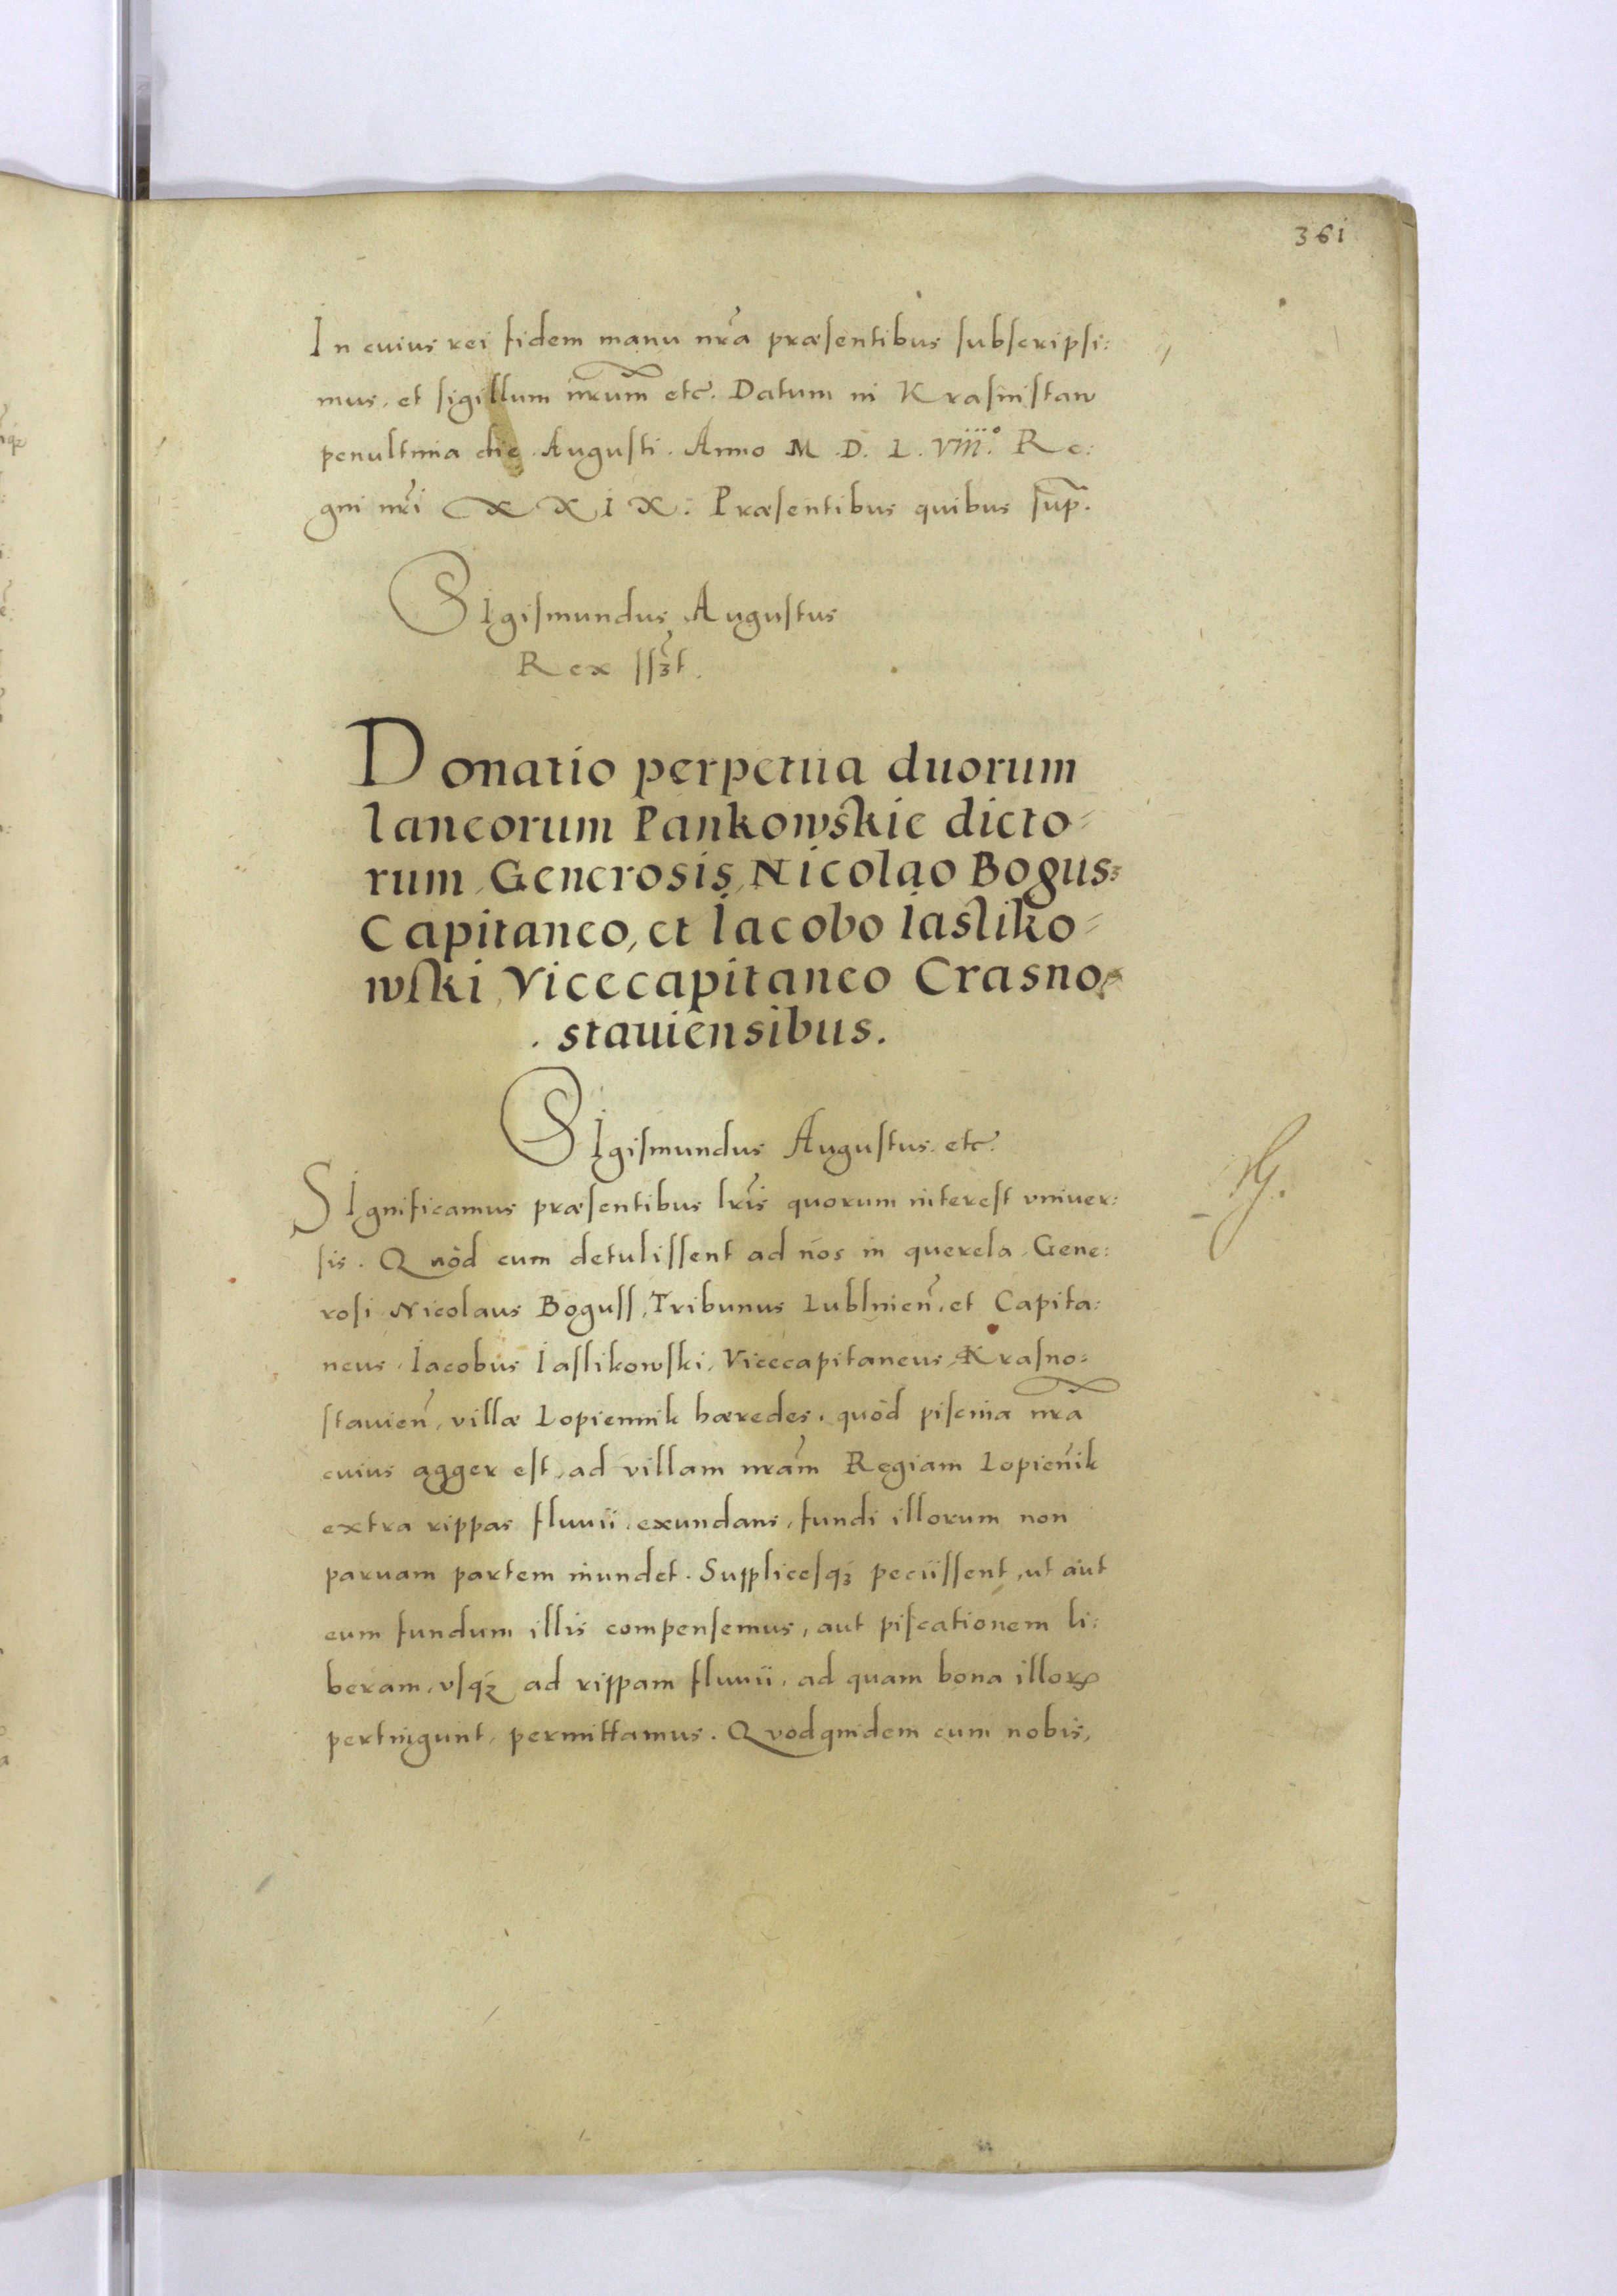 361
In cuius rei fidem manu nr̃a præsentibus subscripsi:
mus, et sigillum nr̃um etc̃. Datum in Krasnistaw
penultima die Augusti. Anno M.D.L.viii.° Re:
gni nr̃i XXIX. Præsentibus quibus sup̃.
SIgismundus Augustus
Rex sszt.
Donatio perpetua duorum
laneorum Pankowskie dicto-
rum, Generosis, Nicolao Bogus:
Capitaneo, et Iacobo Iasliko-
wski, Vicecapitaneo Crasno-
. stauiensibus.
SIgismundus Augustus. etc̃.
SIgnificamus præsentibus lr̃is quorum interest vniuer:
sis. Quòd cum detulissent ad nos in querela, Gene:
rosi Nicolaus Boguss, Tribunus Lublinien̄, et Capita:
neus, Iacobus Iaslikowski, Vicecapitaneus, Krasno:
stauien̄, villæ Lopiennik hæredes, quòd piscina nr̃a
cuius agger est, ad villam nr̃am Regiam Lopien̄ik
extra rippas fluuii, exundans, fundi illorum non
paruam partem inundet. Supplicesqʒ peciissent, ut aut
eum fundum illis compensemus, aut piscationem li:
beram, vsqʒ ad rippam fluuii, ad quam bona illorꝝ
pertingunt, permittamus. Quodquidem cum nobis,